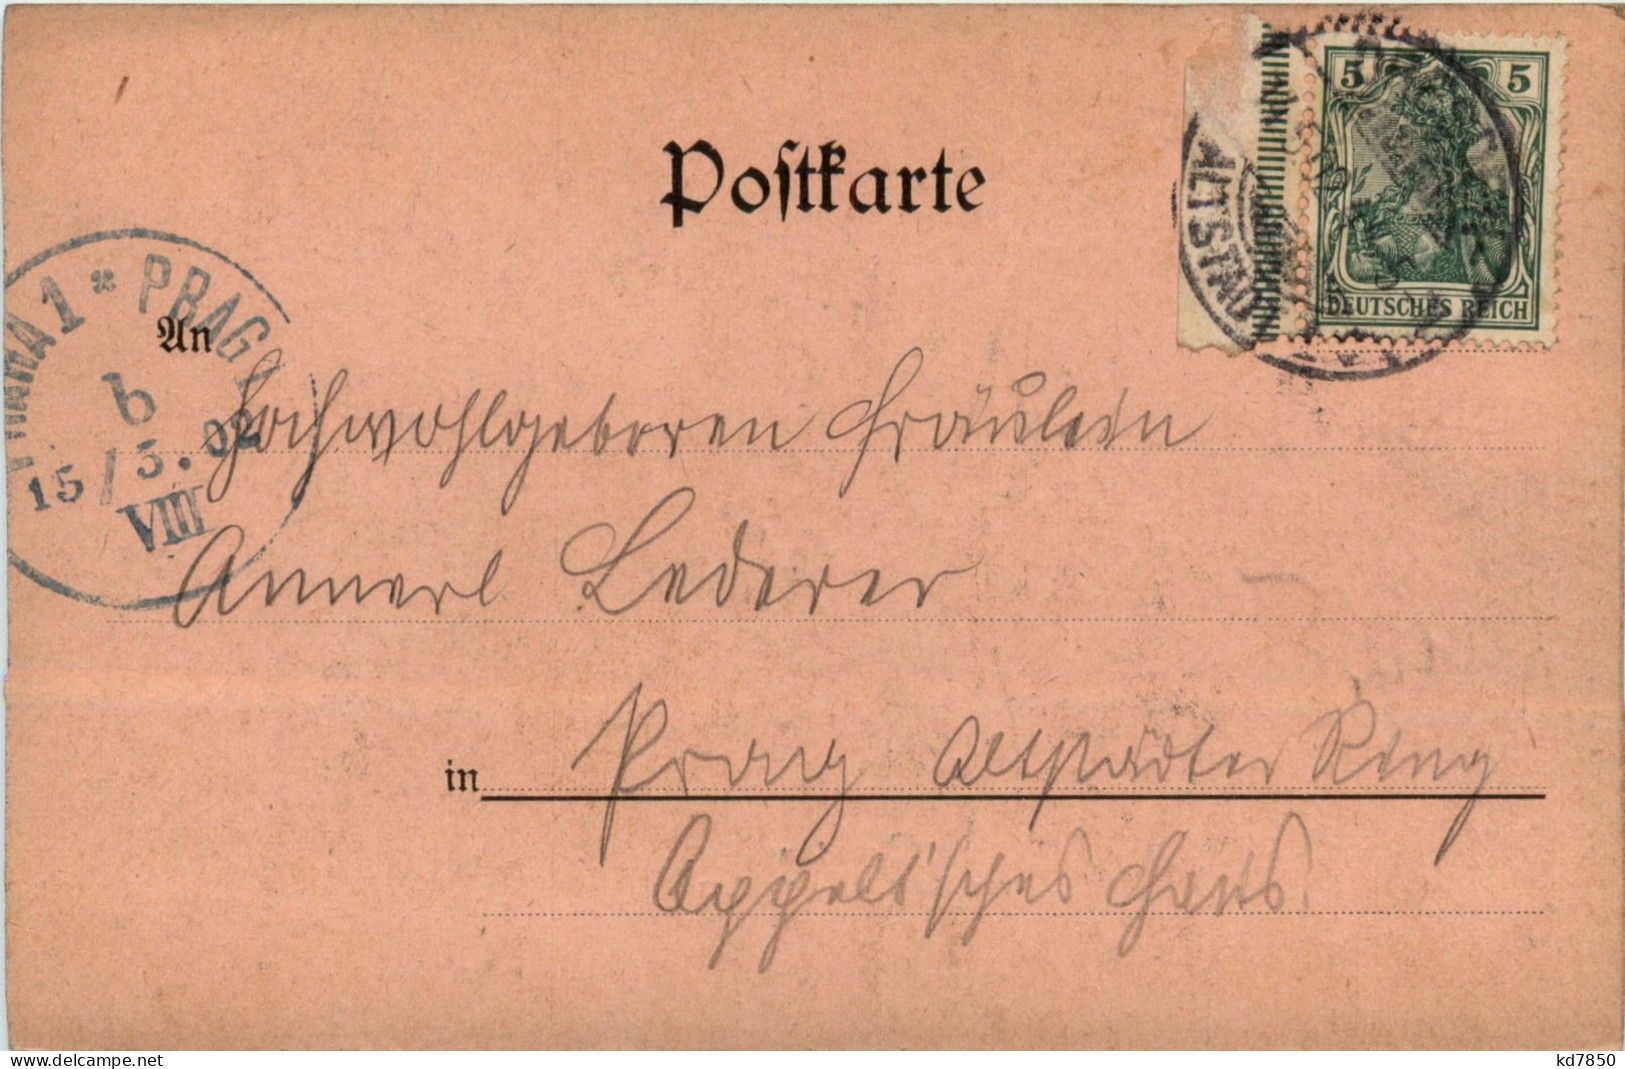 Postkarte
5 5
DEUTSCHES REICH
ALTSTADT
PRAHA 1 * PRAG 1
b
15/3.02
VIII
An
Hochwohlgeboren Fräulein
Annerl Lederer
in Prag Altstädter Ring
Appelt'sches Haus.
delcampe.net
kd7850